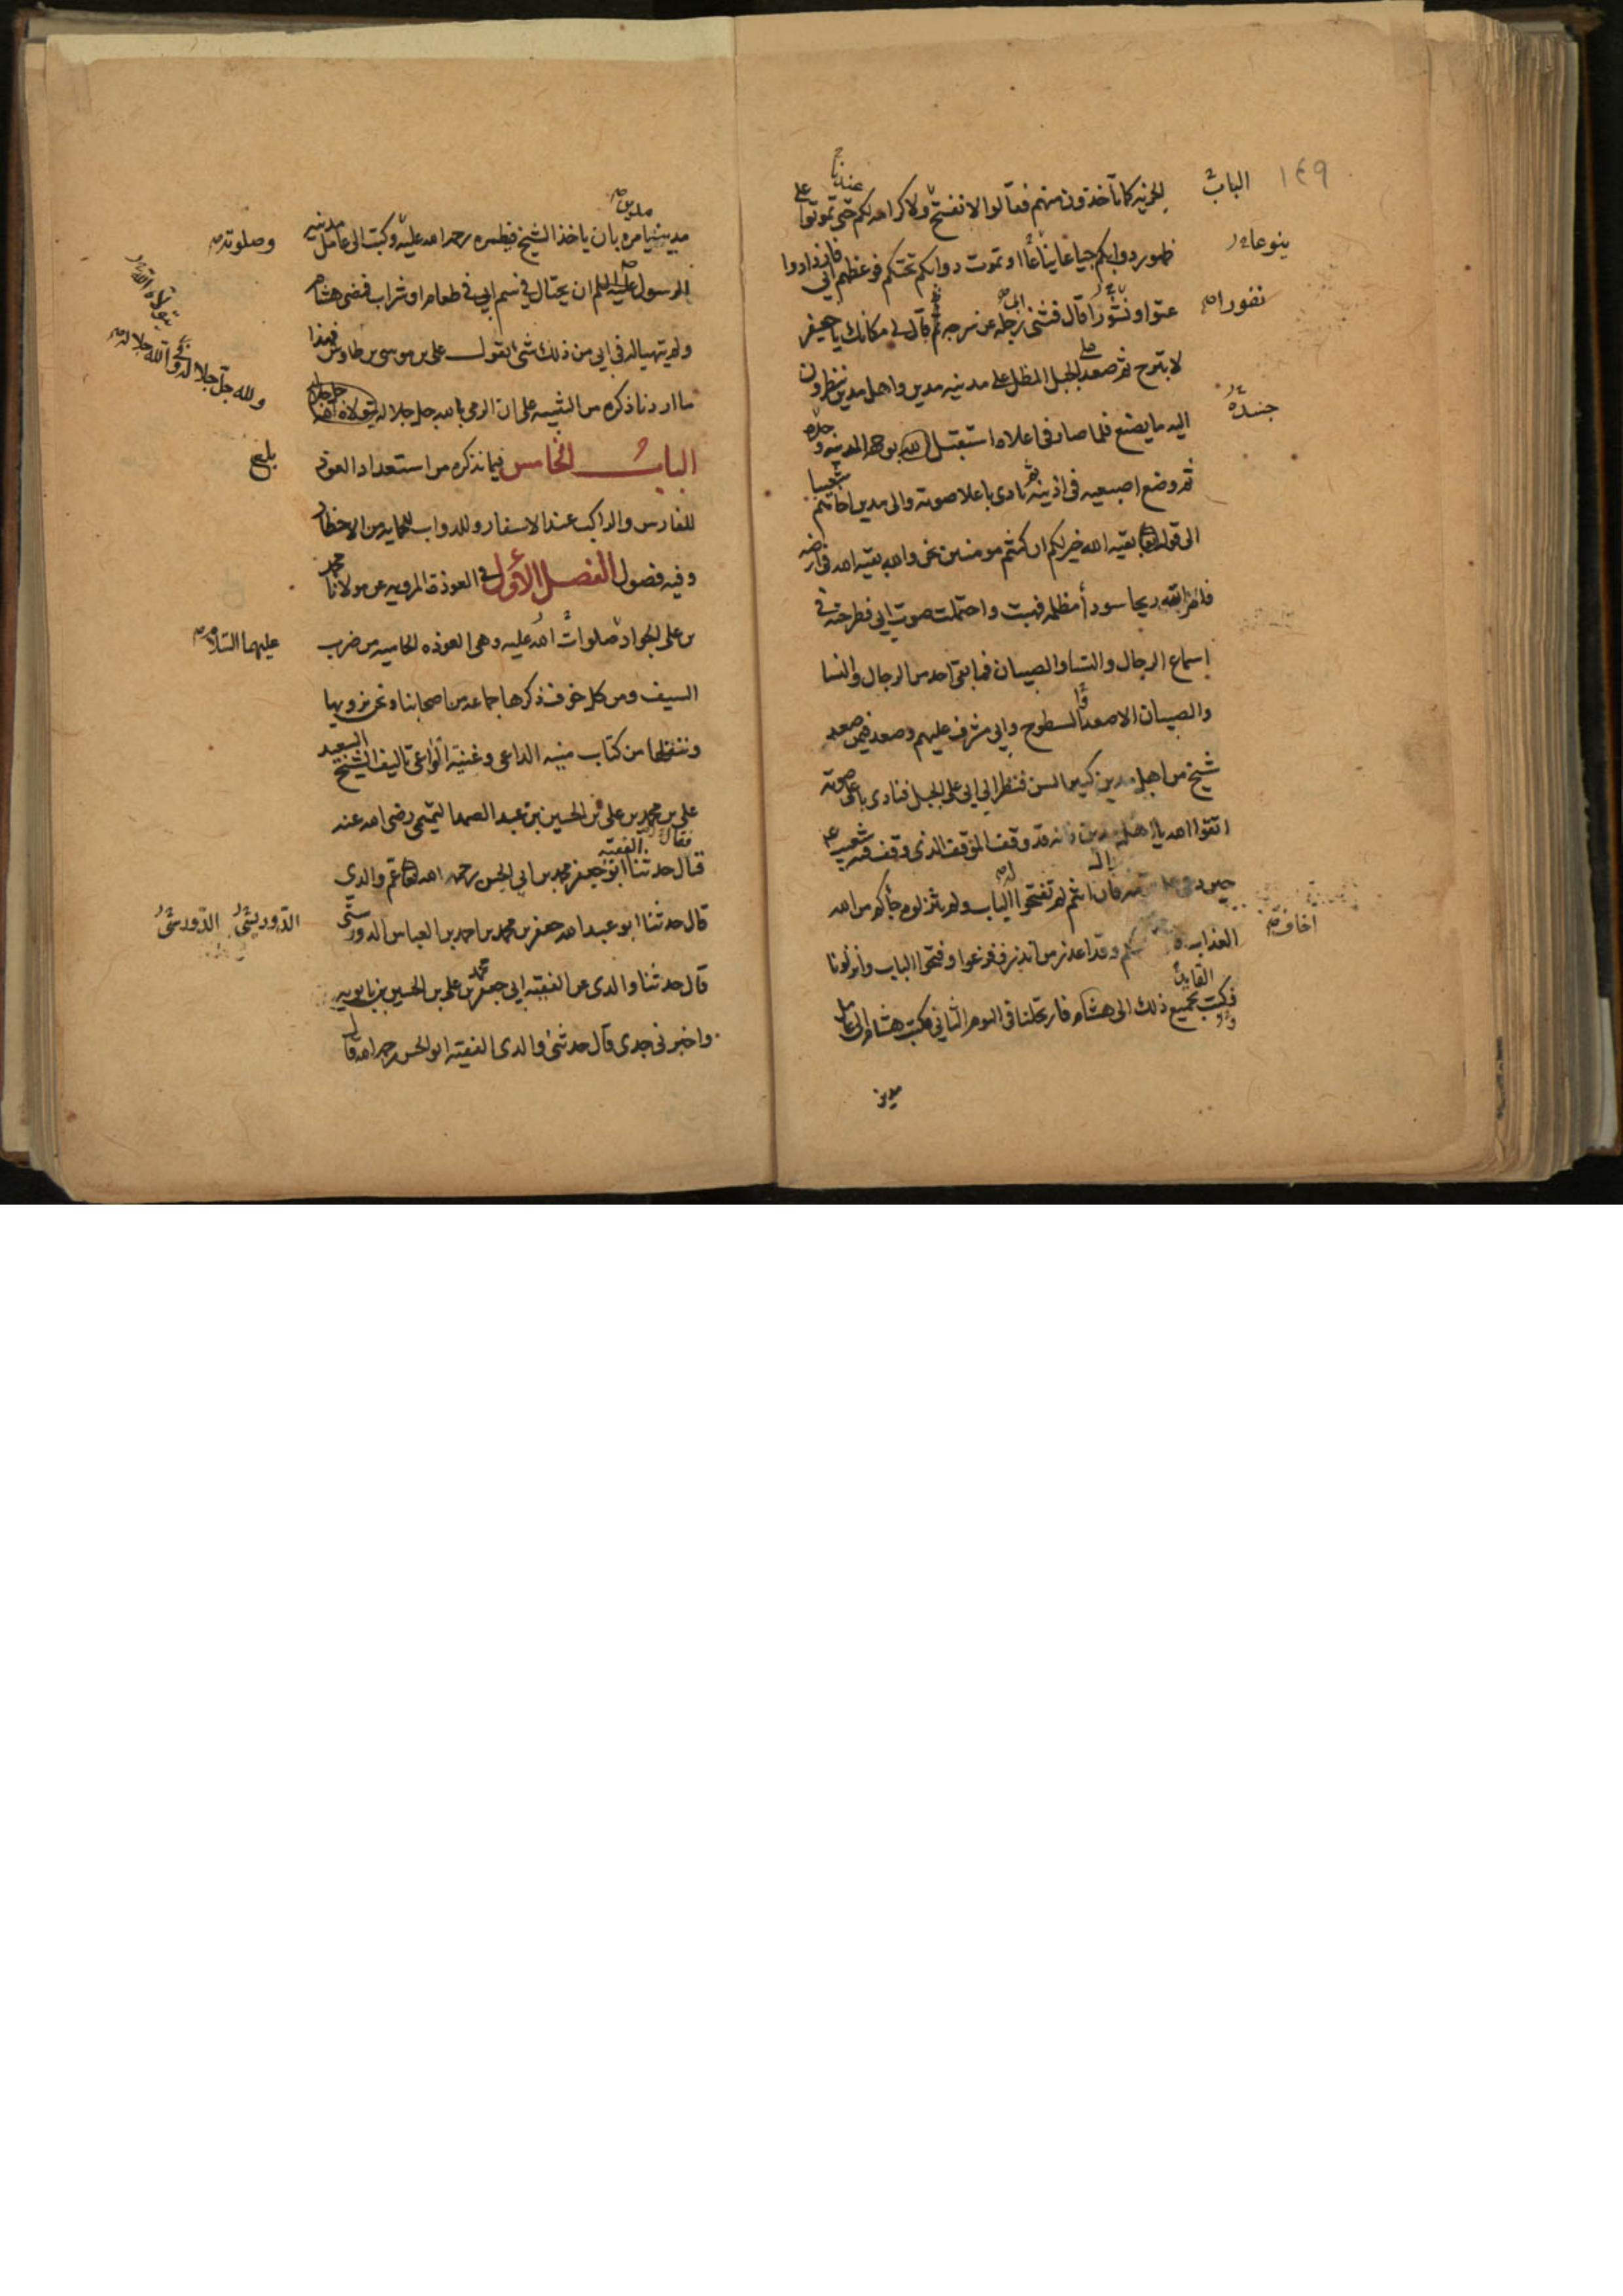 ١٤٩
الباب
الجزية كما تأخذون منهم فقالوا لا نفتح ولا كرامة لكم حتى تموتوا على
ظهور دوابكم جياعا نياعا او تموت دوابكم تحتكم فوعظهم ابي فازدادوا
ينوعا
عتوا ونشوزا قال فثنى ابي رجله عن سرجه ثم قال لي مكانك يا جعفر
نفورا
لا تبرح ثم صعد الجبل المطل على مدينة مدين واهل مدين ينظرون
اليه ما يصنع فلما صار في اعلاه استقبل بوجهه المدينة وحده
جسده
ثم وضع اصبعيه في اذنيه ثم نادى باعلا صوته والى مدين اخاهم شعيبا
الى قوله بقية الله خير لكم ان كنتم مومنين نحن والله بقية الله في ارضه
فامر الله ريحا سودا مظلمة فهبت واحتملت صوت ابي فطرحته في
اسماع الرجال والنسا والصبيان فما بقي احد من الرجال والنسا
والصبيان الا صعد السطوح وابي مشرف عليهم وصعد فيمن صعد
شيخ من اهل مدين كبير السن فنظر الى ابي على الجبل فنادى باعلى صوته
اتقوا الله يا اهل مدين فانه قد وقف الموقف الذي وقف فيه شعيب
حين دعى على قومه فان انتم لم تفتحوا الباب ولم تنزلوه جاكم من الله
العذاب وقد اعذر من انذر ففزعوا وفتحوا الباب وانزلونا
اخاف
فكتب بجميع ذلك الى هشام فارتحلنا في اليوم الثاني فكتب هشام الى عامل
مدين
مدين يامره بان ياخذ الشيخ فيطمره رحمة الله عليه وكتب الى عامل مدينة
وصلوته
الرسول ان يحتال في سم ابي في طعام او شراب فمضى هشام
ولم يتهيا له في ابي من ذلك شي يقول علي بن موسى بن طاوس فهذا
ما اردنا ذكره من التنبيه على ان الرمي بالله جل جلاله
الباب الخامس فيما نذكره من استعداد العوذ
بلغ
للفارس والراكب عند الاسفار وللدواب للحماية من الاخطار
وفيه فصول الفصل الاول في العوذة المروية عن مولانا محمد
بن علي الجواد صلوات الله عليه وهي العوذه الحامية من ضرب
عليهما السلام
السيف ومن كل خوف ذكرها جماعة من اصحابنا ونحن نرويها
وننقلها من كتاب منية الداعي وغنية الواعي تاليف الشيخ السعيد
علي بن محمد بن علي بن الحسين بن عبد الصمد التميمي رضي الله عنه
قال حدثنا الفقيه ابو جعفر محمد بن ابي الحسن رحمه الله عم والدي
قال حدثنا ابو عبد الله جعفر بن محمد بن احمد بن العباس الدوريستي
الدوريشتي
قال حدثنا والدي عن الفقيه ابي جعفر محمد بن علي بن الحسين بن بابويه
واخبرني جدي قال حدثني والدي الفقيه ابو الحسن رحمه الله قال